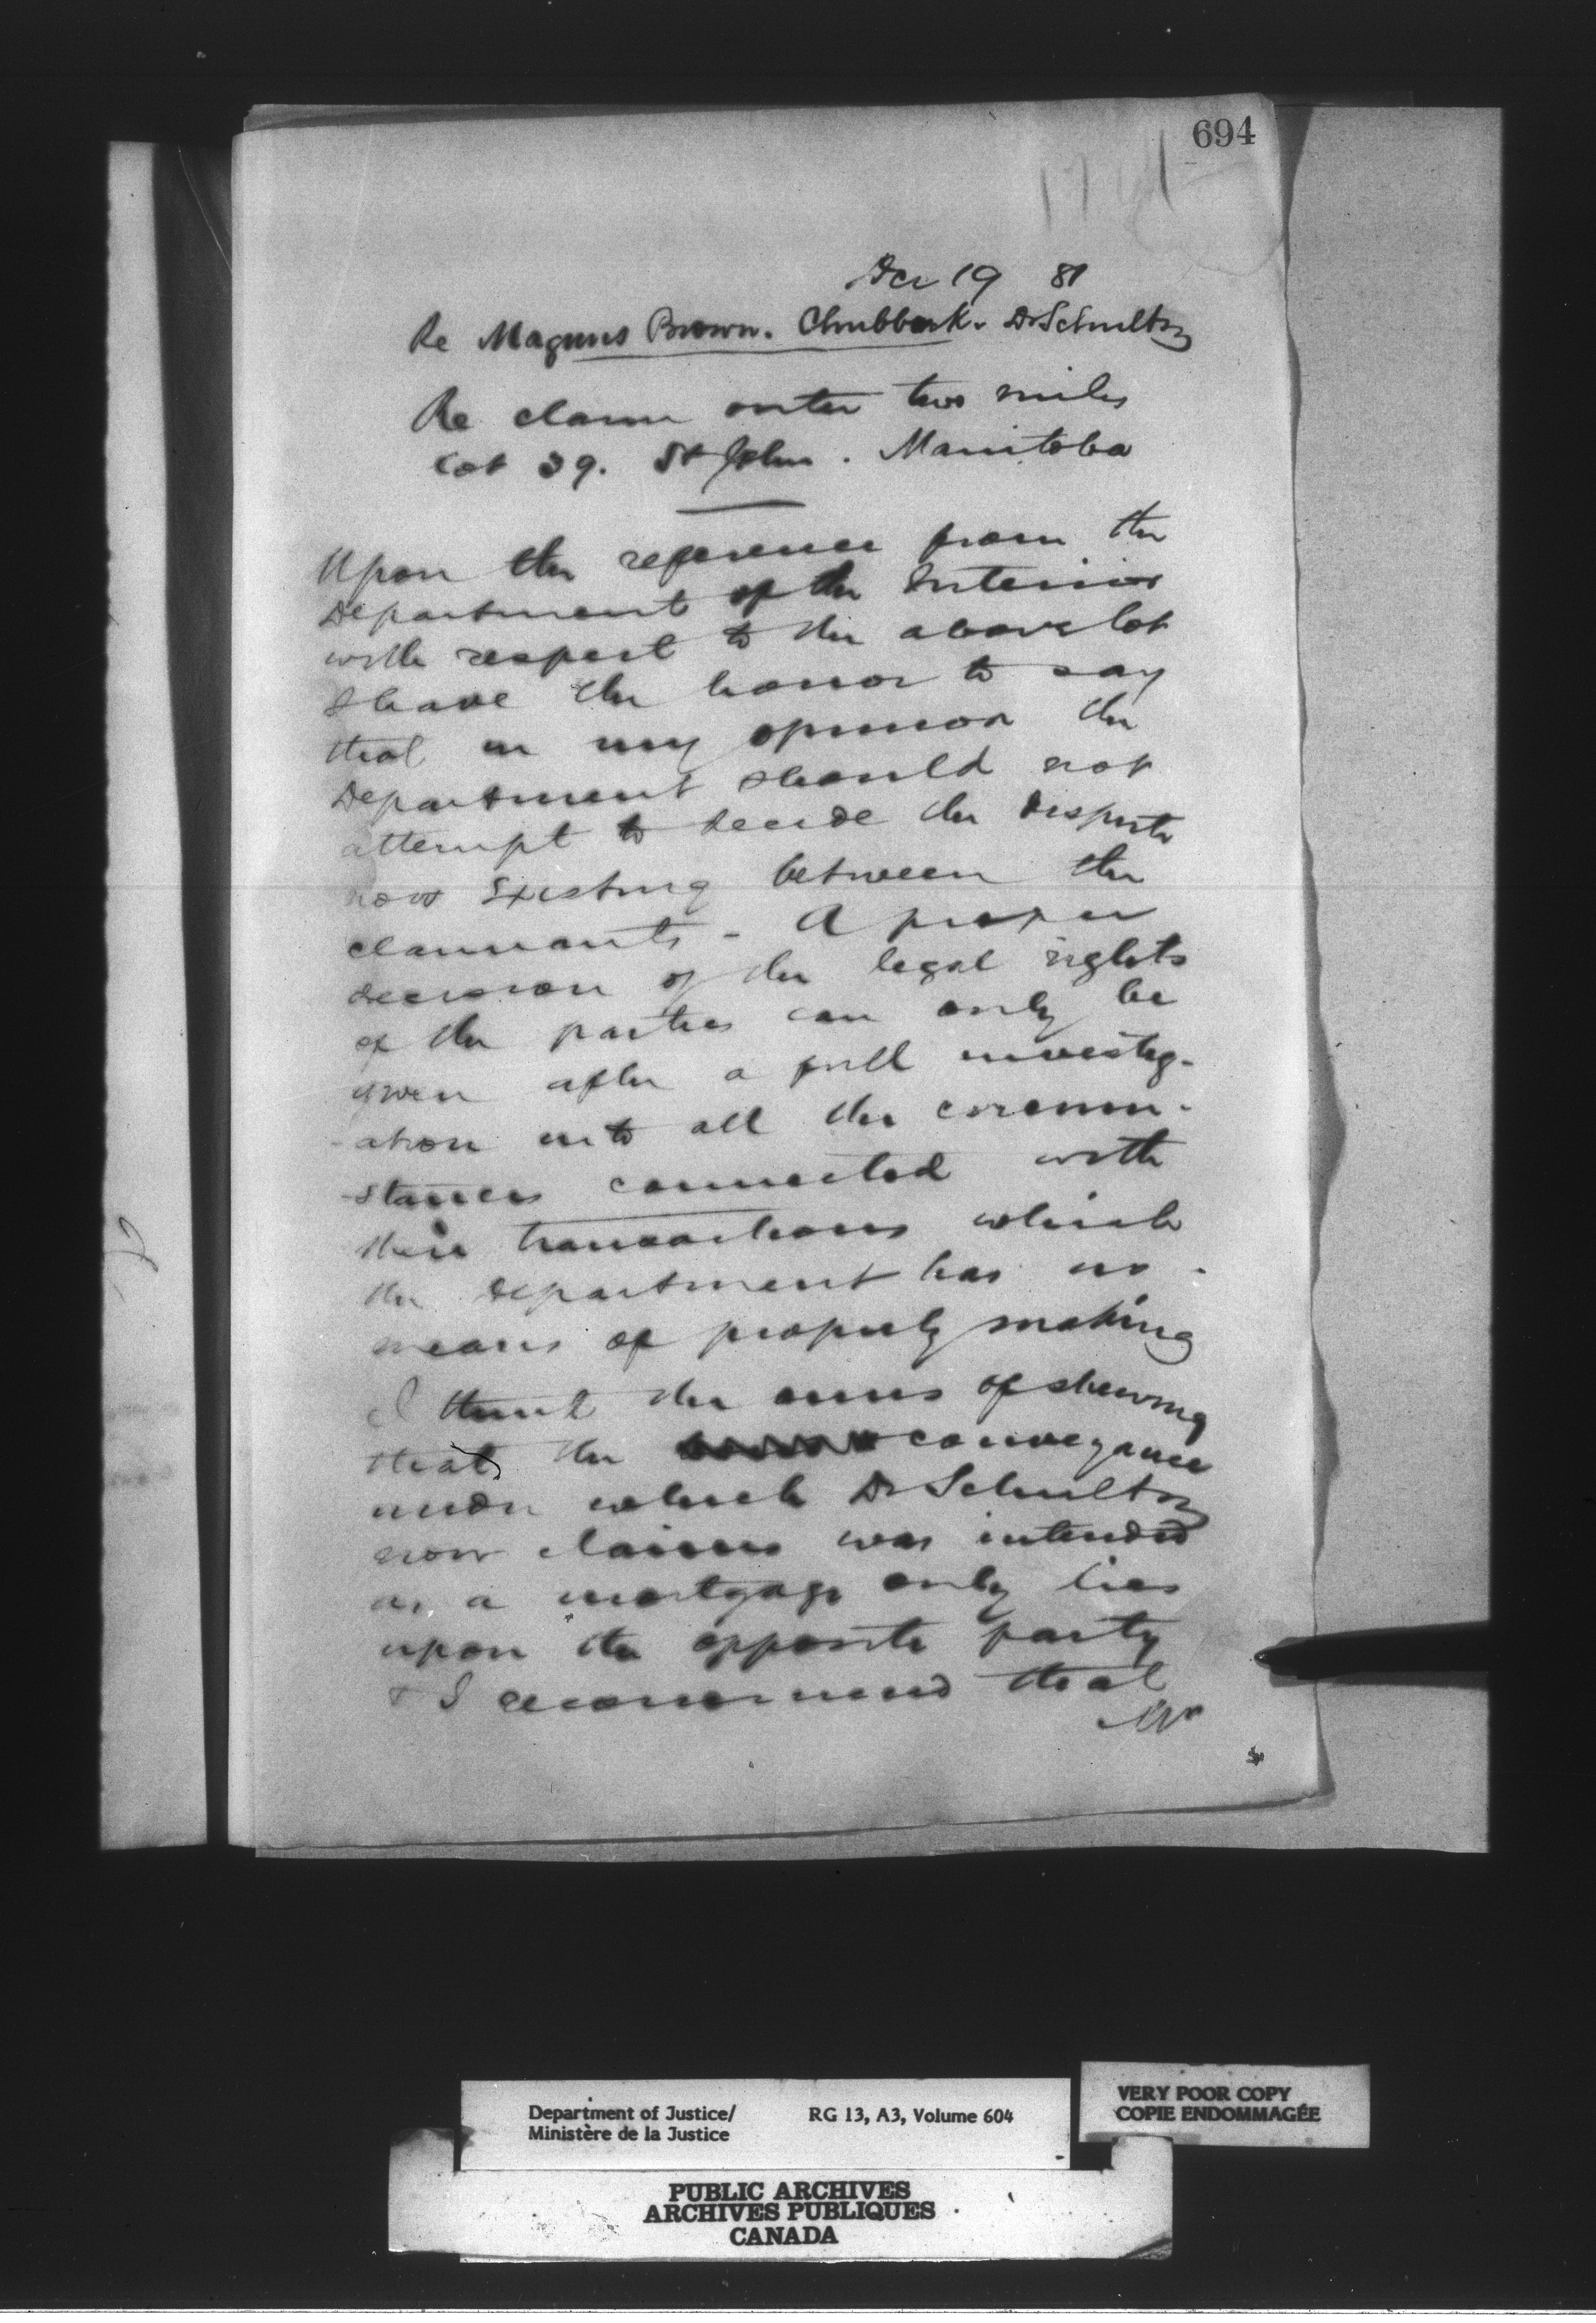 694
Dec 19 81
Re Magnus Brown. Chubbuck. Dr Schultz
Re claim outer two miles
Lot 39. St John. Manitoba
Upon the reference from the
Department of the Interior
with respect to the above lot
I have the honor to say
that in my opinion the
Department should not
attempt to decide the dispute
now existing between the
claimants - A proper
decision of the legal rights
of the parties can only be
given after a full investig-
-ation into all the circum-
-stances connected with
their transactions which
the Department has no
means of properly making
I think the onus of shewing
that the conveyance
under which Dr Schultz
now claims was intended
as a mortgage only lies
upon the opposite party
& I recommend that
Mr
Department of Justice/
Ministère de la Justice
RG 13, A3, Volume 604
VERY POOR COPY
COPIE ENDOMMAGÉE
PUBLIC ARCHIVES
ARCHIVES PUBLIQUES
CANADA